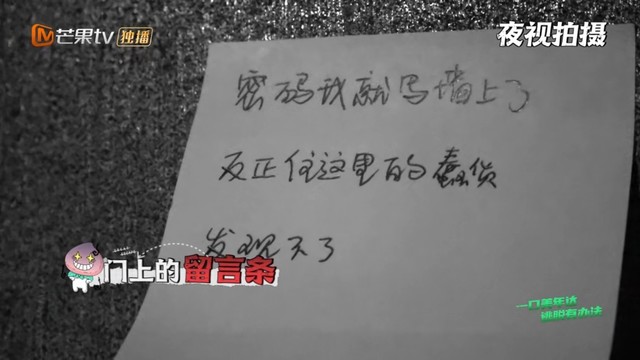 芒果tv 独播
夜视拍摄
密码我就写墙上了
反正住这里的蠢货
发现不了
门上的留言条
逃脱有办法